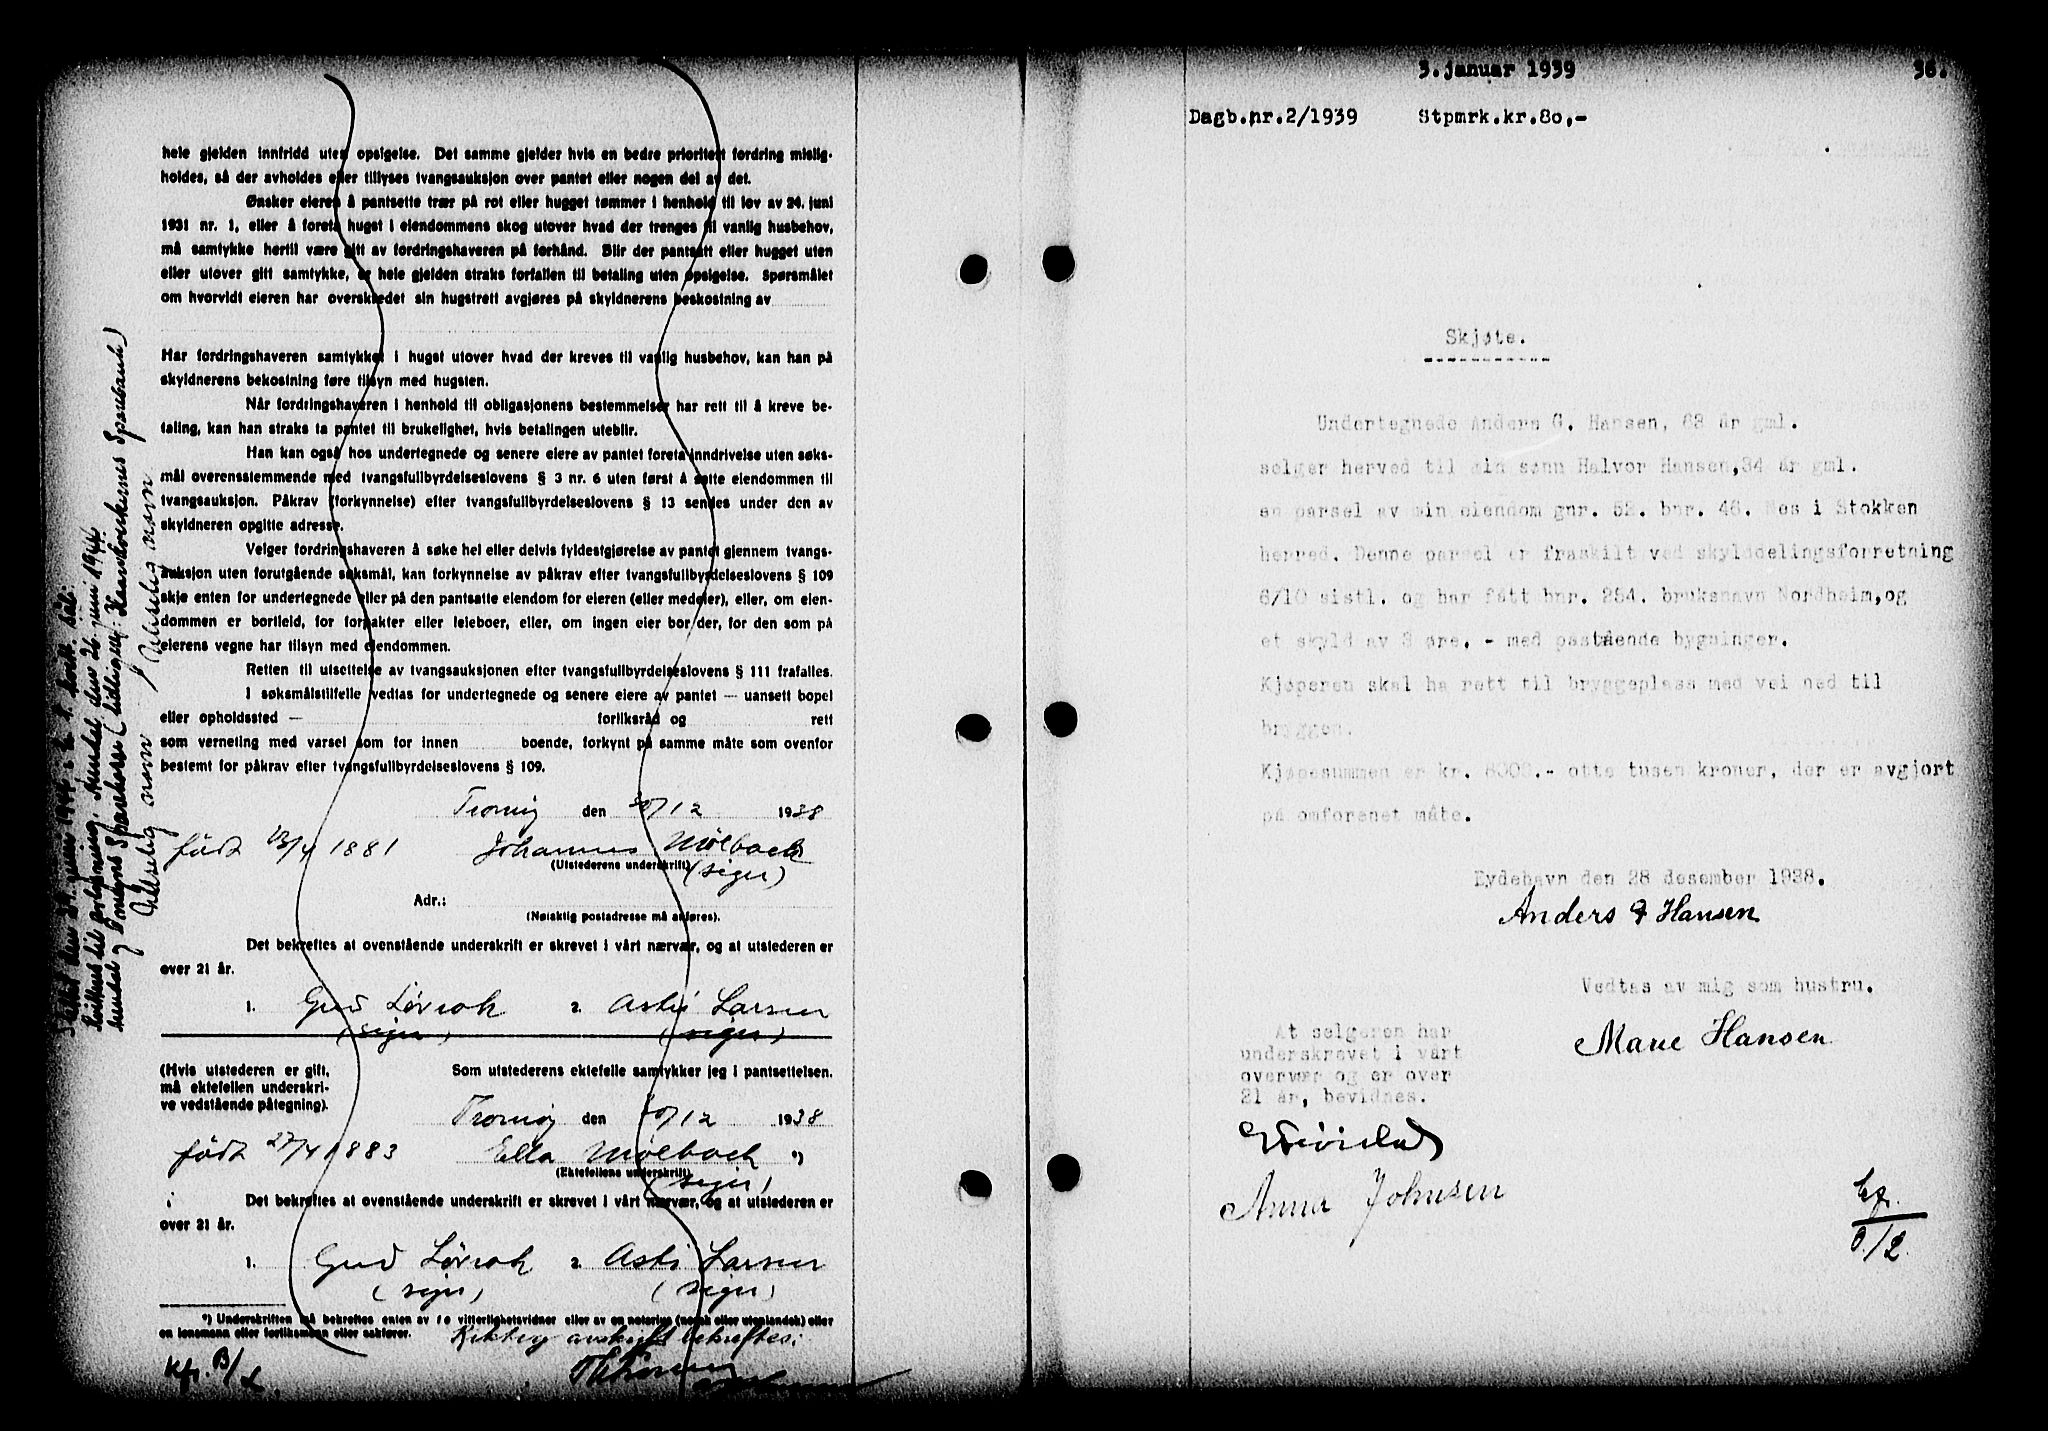 hele gjelden innfridd uten opsigelse. Det samme gjelder hvis en bedre prioritert fordring mislig-
holdes, så der avholdes eller tillyses tvangsauksjon over pantet eller nogen del av det.
Ønsker eieren å pantsette trær på rot eller hugget tømmer i henhold til lov av 24. juni
1931 nr. 1, eller å foreta hugst i eiendommens skog utover hvad der trenges til vanlig husbehov,
må samtykke hertil være gitt av fordringshaveren på forhånd. Blir der pantsatt eller hugget uten
eller utover gitt samtykke, er hele gjelden straks forfallen til betaling uten opsigelse. Spørsmålet
om hvorvidt eieren har overskredet sin hugstrett avgjøres på skyldnerens beskostning av
Har fordringshaveren samtykket i hugst utover hvad der kreves til vanlig husbehov, kan han på
skyldnerens bekostning føre tilsyn med hugsten.
Når fordringshaveren i henhold til obligasjonens bestemmelser har rett til å kreve be-
taling, kan han straks ta pantet til brukelighet, hvis betalingen uteblir.
Han kan også hos undertegnede og senere eiere av pantet foreta inndrivelse uten søks-
mål overensstemmende med tvangsfullbyrdelseslovens § 3 nr. 6 uten først å sette eiendommen til
tvangsauksjon. Påkrav (forkynnelse) efter tvangsfullbyrdelseslovens § 13 sendes under den av
skyldneren opgitte adresse.
Velger fordringshaveren å søke hel eller delvis fyldestgjørelse av pantet gjennem tvangs-
auksjon uten forutgående søksmål, kan forkynnelse av påkrav efter tvangsfullbyrdelseslovens § 109
skje enten for undertegnede eller på den pantsatte eiendom for eieren (eller medeier), eller, om eien-
dommen er bortleid, for forpakter eller leieboer, eller, om ingen eier bor der, for den som på
eierens vegne har tilsyn med eiendommen.
Retten til utsettelse av tvangsauksjonen efter tvangsfullbyrdelseslovens § 111 frafalles.
I søksmålstilfelle vedtas for undertegnede og senere eiere av pantet — uansett bopel
eller opholdssted — forliksråd og rett
som verneting med varsel som for innen boende, forkynt på samme måte som ovenfor
bestemt for påkrav efter tvangsfullbyrdelseslovens § 109.
Tromøy den 30/12 1938
født 13/4 1881 Johannes Mølback
(Utstederens underskrift) (sign)
Adr.:
(Nøiaktig postadresse må anføres).
Det bekreftes at ovenstående underskrift er skrevet i vårt nærvær, og at utstederen er
over 21 år.
1. Gud Løvrak 2. Asti Larsen
(sign) (sign)
(Hvis utstederen er gift, Som utstederens ektefelle samtykker jeg i pantsettelsen.
må ektefellen underskri-
ve vedstående påtegning).
Tromøy den 30/12 1938
født 27/4 1883 Ella Mølback *)
(Ektefellens underskrift)
(sign)
Det bekreftes at ovenstående underskrift er skrevet i vårt nærvær, og at utstederen er
over 21 år.
1. Gud Løvrak 2. Asti Larsen
(sign) (sign)
*) Underskriften må bekreftes enten av to vitterlighetsvidner eller av en notarius (norsk eller utenlandsk) eller
en lensmann eller forliksmann eller sakfører.
Riktig avskrift bekreftes:
Kfr.
3. januar 1939 36.
Dagb.nr.2/1939 Stpmrk.kr.80,-
Skjøte.
-----------
Undertegnede Anders G. Hansen, 68 år gml.
selger herved til min sønn Halvor Hansen,34 år gml.
en parsel av min eiendom gnr. 52. bnr. 46. Nes i Stokken
herred. Denne parsel er fraskilt ved skylddelingsforretning
6/10 sistl. og har fått bnr. 254. bruksnavn Nordheim,og
et skyld av 3 øre. - med påstående bygninger.
Kjøperen skal ha rett til bryggeplass med vei ned til
bryggen.
Kjøpesummen er kr. 8000.- otte tusen kroner, der er avgjort
på omforenet måte.
Eydehavn den 28 desember 1938.
Anders G Hansen
Vedtas av mig som hustru.
Marie Hansen
At selgeren har
underskrevet i vårt
overvær og er over
21 år, bevidnes.
Anna Johnsen